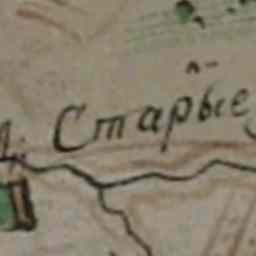 Старые